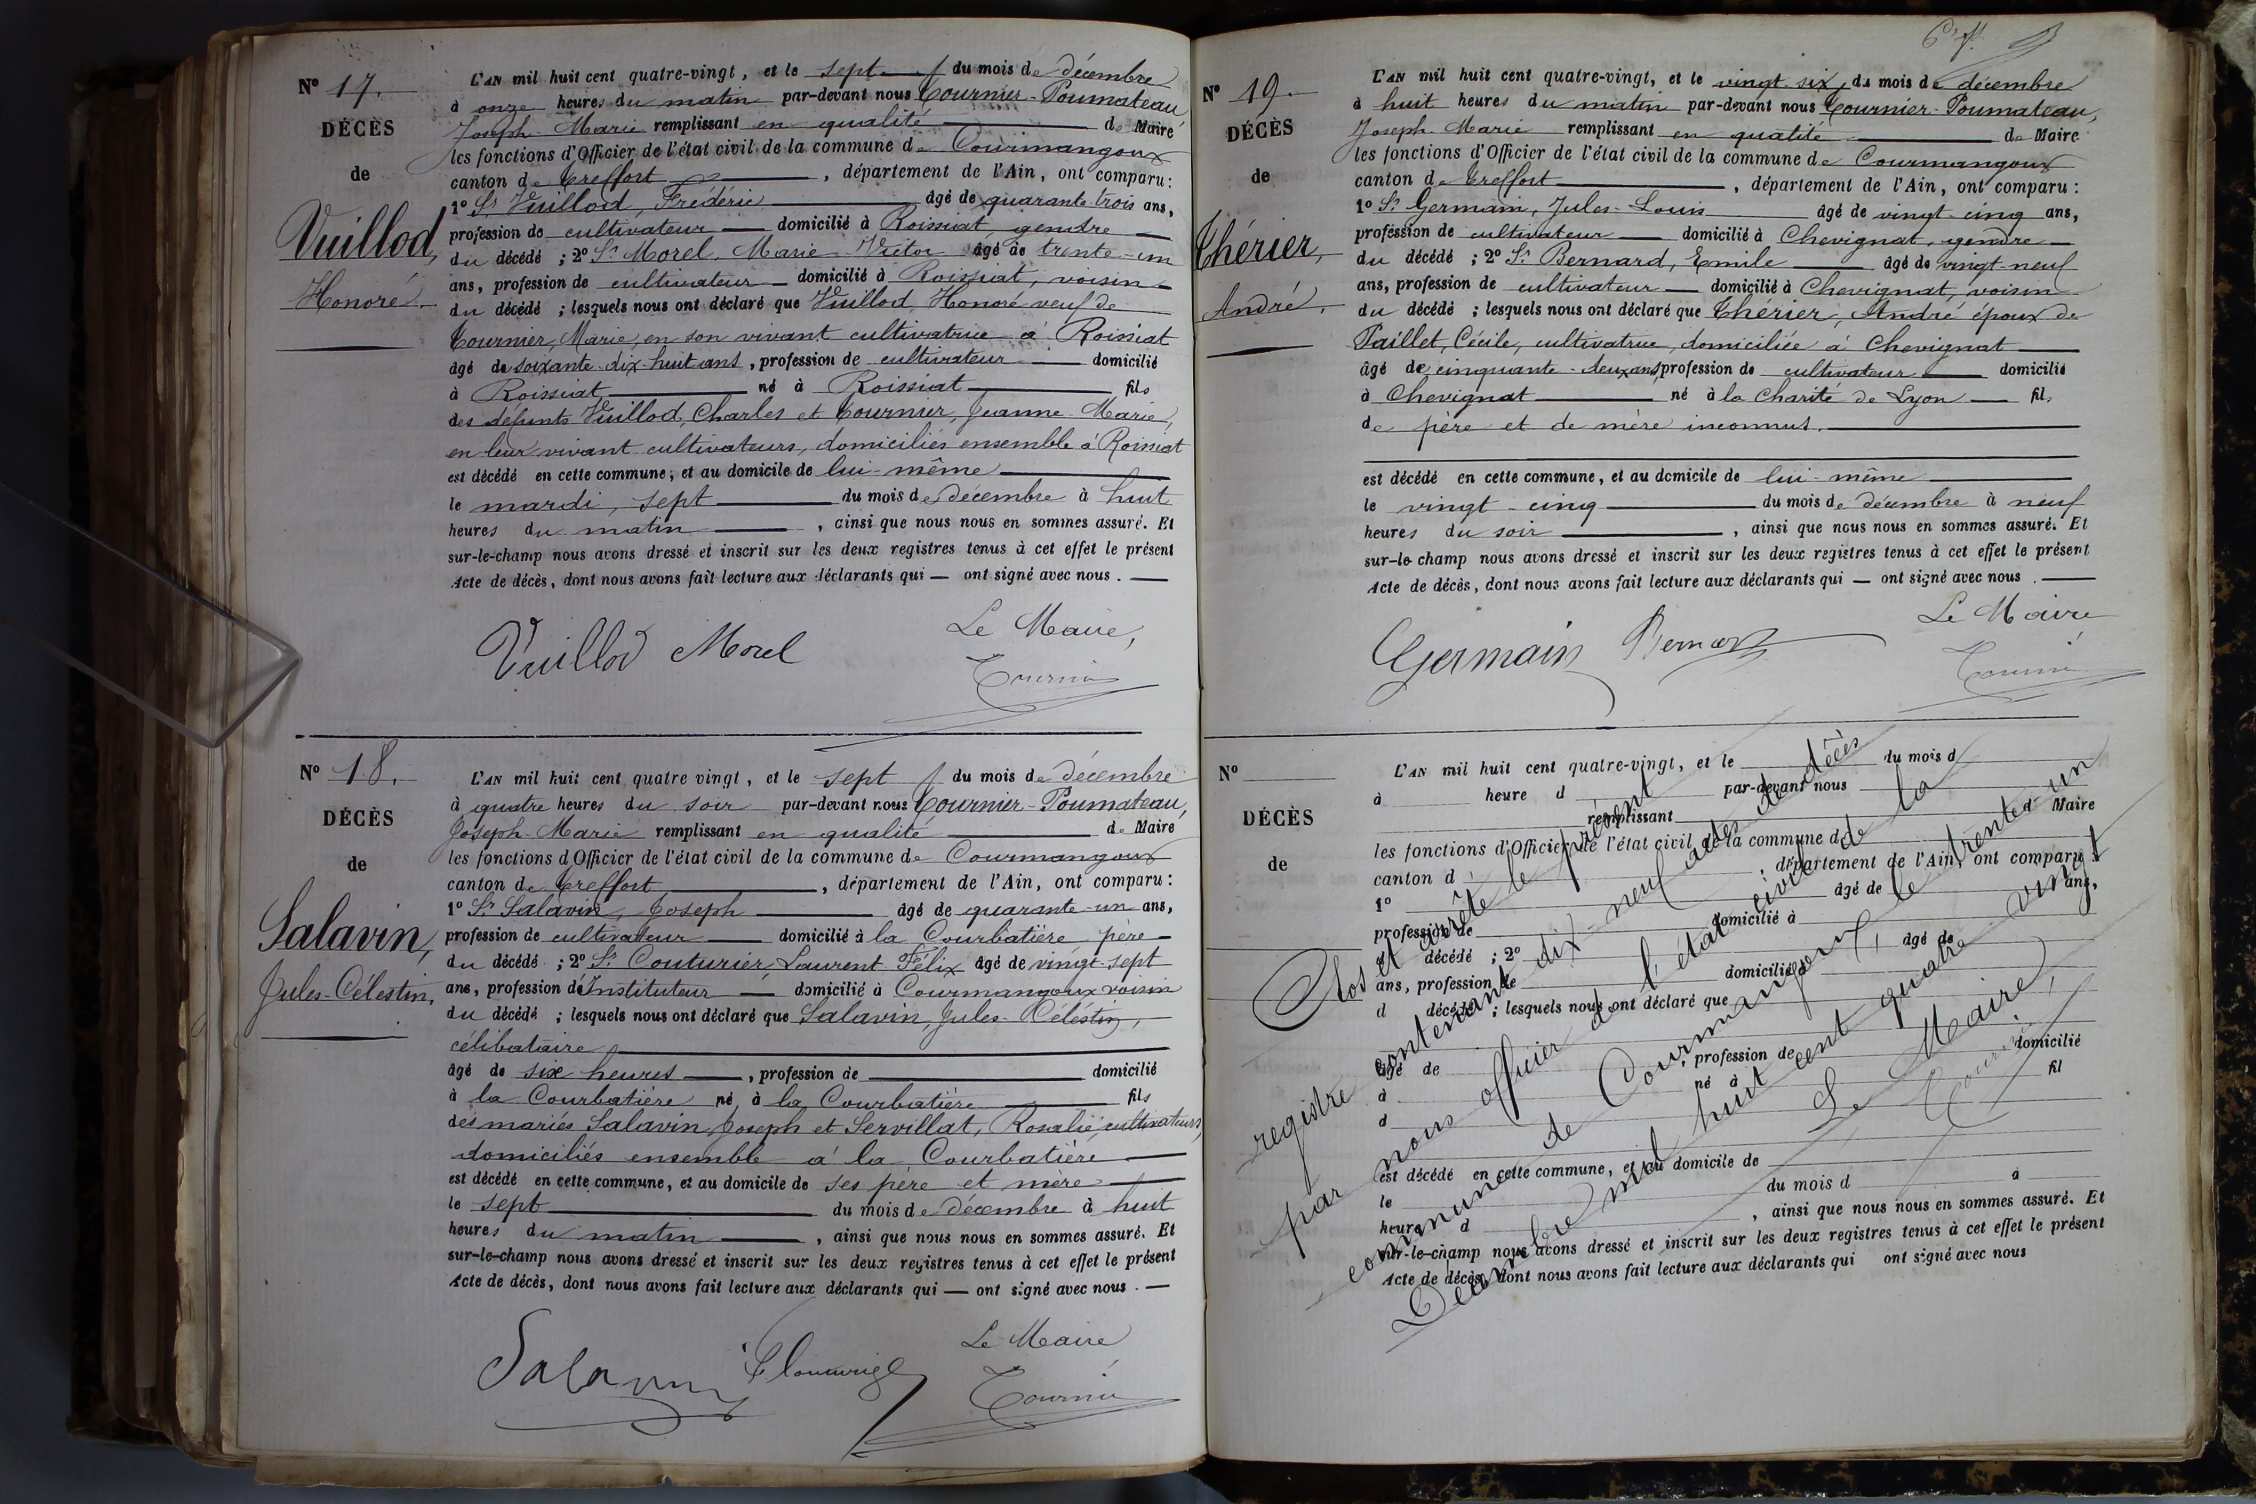 Nº 17.
DÉCÈS
de
Vuillod,
Honoré.
L'AN mil huit cent quatre-vingt, et le sept du mois de décembre
à onze heures du matin par-devant nous Tournier-Poumateau,
Joseph-Marie remplissant en qualité de Maire
les fonctions d'Officier de l'état civil de la commune de Courmangoux
canton de Treffort, département de l'Ain, ont comparu:
1º Sr Vuillod, Frédéric âgé de quarante-trois ans,
profession de cultivateur domicilié à Roissiat, gendre
du décédé ; 2º Sr Morel, Marie-Victor âgé de trente-un
ans, profession de cultivateur domicilié à Roissiat, voisin
du décédé ; lesquels nous ont déclaré que Vuillod, Honoré veuf de
Tournier, Marie, en son vivant cultivatrice à Roissiat
âgé de soixante-dix-huit ans, profession de cultivateur domicilié
à Roissiat né à Roissiat fils
des défunts Vuillod, Charles et Tournier, Jeanne-Marie,
en leur vivant cultivateurs, domiciliés ensemble à Roissiat
est décédé en cette commune, et au domicile de lui-même
le mardi, sept du mois de décembre à huit
heures du matin, ainsi que nous nous en sommes assuré. Et
sur-le-champ nous avons dressé et inscrit sur les deux registres tenus à cet effet le présent
Acte de décès, dont nous avons fait lecture aux déclarants qui — ont signé avec nous. —
Vuillod Morel
Le Maire,
Tournier
Nº 18.
DÉCÈS
de
Salavin,
Jules-Célestin,
L'AN mil huit cent quatre vingt, et le sept du mois de décembre
à quatre heures du soir par-devant nous Tournier-Poumateau,
Joseph-Marie remplissant en qualité de Maire
les fonctions d'Officier de l'état civil de la commune de Courmangoux
canton de Treffort, département de l'Ain, ont comparu:
1º Sr Salavin, Joseph âgé de quarante-un ans,
profession de cultivateur domicilié à la Courbatière père
du décédé ; 2º Sr Couturier, Laurent-Félix âgé de vingt-sept
ans, profession de Instituteur domicilié à Courmangoux voisin
du décédé ; lesquels nous ont déclaré que Salavin, Jules-Célestin,
célibataire
âgé de six heures, profession de domicilié
à la Courbatière né à la Courbatière fils
des mariés Salavin, Joseph et Servillat, Rosalie, cultivateurs,
domiciliés ensemble à la Courbatière
est décédé en cette commune, et au domicile de ses père et mère
le sept du mois de décembre à huit
heures du matin, ainsi que nous nous en sommes assuré. Et
sur-le-champ nous avons dressé et inscrit sur les deux registres tenus à cet effet le présent
Acte de décès, dont nous avons fait lecture aux déclarants qui — ont signé avec nous. —
Salavin
Le Maire
Tournier
Nº 19.
DÉCÈS
de
Thérier,
André.
L'AN mil huit cent quatre-vingt, et le vingt-six, du mois de décembre
à huit heures du matin par-devant nous Tournier-Poumateau,
Joseph-Marie remplissant en qualité de Maire
les fonctions d'Officier de l'état civil de la commune de Courmangoux
canton de Treffort, département de l'Ain, ont comparu :
1º Sr Germain, Jules-Louis âgé de vingt-cinq ans,
profession de cultivateur domicilié à Chevignat, gendre
du décédé ; 2º Sr Bernard, Emile âgé de vingt-neuf
ans, profession de cultivateur domicilié à Chevignat, voisin
du décédé ; lesquels nous ont déclaré que Thérier, André époux de
Paillet, Cécile, cultivatrice, domiciliée à Chevignat
âgé de cinquante-deux ans, profession de cultivateur domicilié
à Chevignat né à la Charité de Lyon fils
de père et de mère inconnus.
est décédé en cette commune, et au domicile de lui-même
le vingt-cinq du mois de décembre à neuf
heures du soir, ainsi que nous nous en sommes assuré. Et
sur-le-champ nous avons dressé et inscrit sur les deux registres tenus à cet effet le présent
Acte de décès, dont nous avons fait lecture aux déclarants qui — ont signé avec nous. —
Germain Bernard
Le Maire
Tournier
Nº
DÉCÈS
de
L'AN mil huit cent quatre-vingt, et le du mois d
à heure d par-devant nous
remplissant d Maire
les fonctions d'Officier de l'état civil de la commune d
canton d , département de l'Ain, ont comparu :
1º âgé de ans,
profession de domicilié à
d décédé ; 2º âgé de
ans, profession de domicilié à
d décédé ; lesquels nous ont déclaré que
âgé de , profession de domicilié
à né à fil
d
est décédé en cette commune, et au domicile de
le du mois d à
heure d , ainsi que nous nous en sommes assuré. Et
sur-le-champ nous avons dressé et inscrit sur les deux registres tenus à cet effet le présent
Acte de décès, dont nous avons fait lecture aux déclarants qui ont signé avec nous
Clos et arrêté le présent
registre contenant dix-neuf actes de décès
par nous officier de l'état civil de la
commune de Courmangoux, le trente-un
Décembre mil huit cent quatre vingt
Le Maire,
Tournier